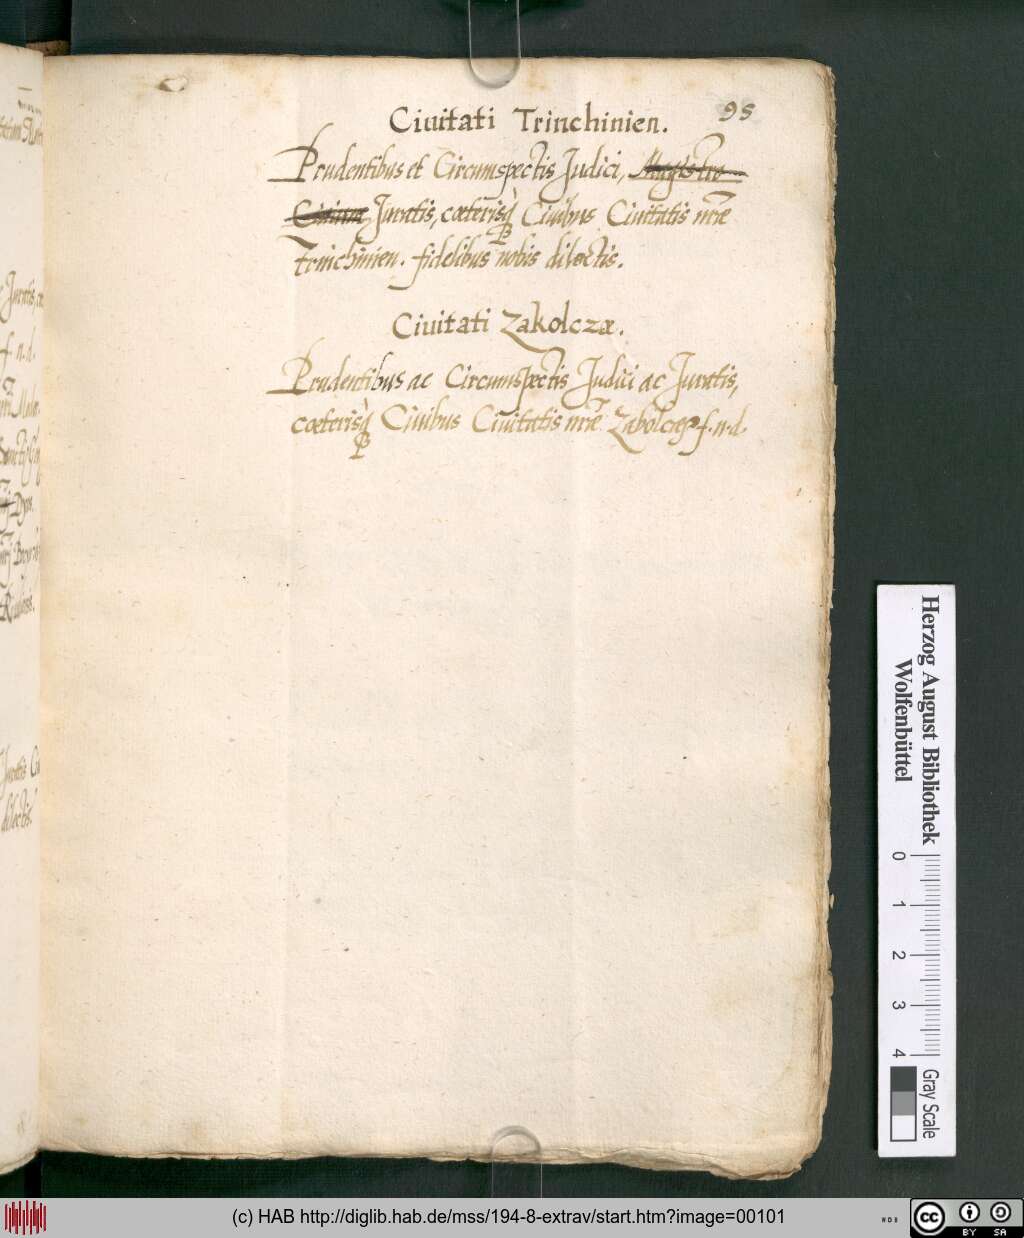 95
Ciuitati Trinchinien.
Prudentibus et Circumspectis Judici, Magistro
Ciuium Juratis, cæterisq̀ Ciuibus Ciuitatis nr̄æ
Trinchinien. fidelibus nobis dilectis.
Ciuitati Zakolczæ.
Prudentibus ac Circumspectis Judici ac Juratis,
cæterisq̀ Ciuibus Ciuitatis nr̄æ Zakolcæ f. n. d.
Juratis
f. n. d.
dilectis.
Herzog August Bibliothek
Wolfenbüttel
0 1 2 3 4
Gray Scale
(c) HAB http://diglib.hab.de/mss/194-8-extrav/start.htm?image=00101
WDB
cc BY SA